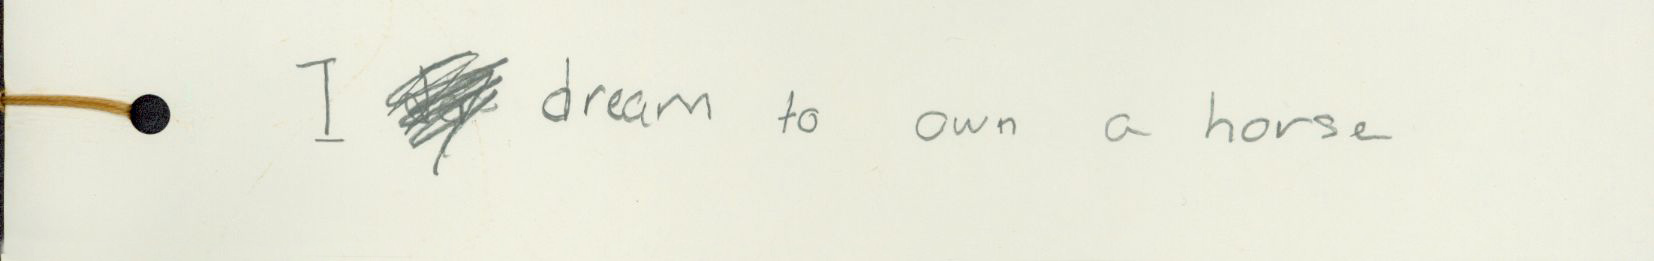 I dream to own a horse